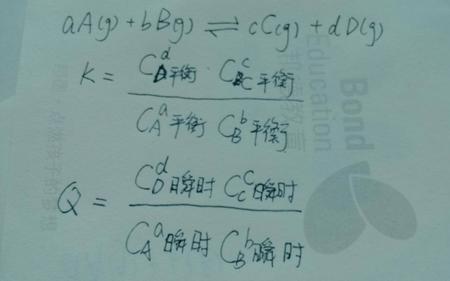 aA(g) + bB(g) ⇌ cC(g) + dD(g)
K = C_D^d平衡 C_C^c平衡 / C_A^a平衡 C_B^b平衡
Q = C_D^d瞬时 C_C^c瞬时 / C_A^a瞬时 C_B^b瞬时
Bond
Education